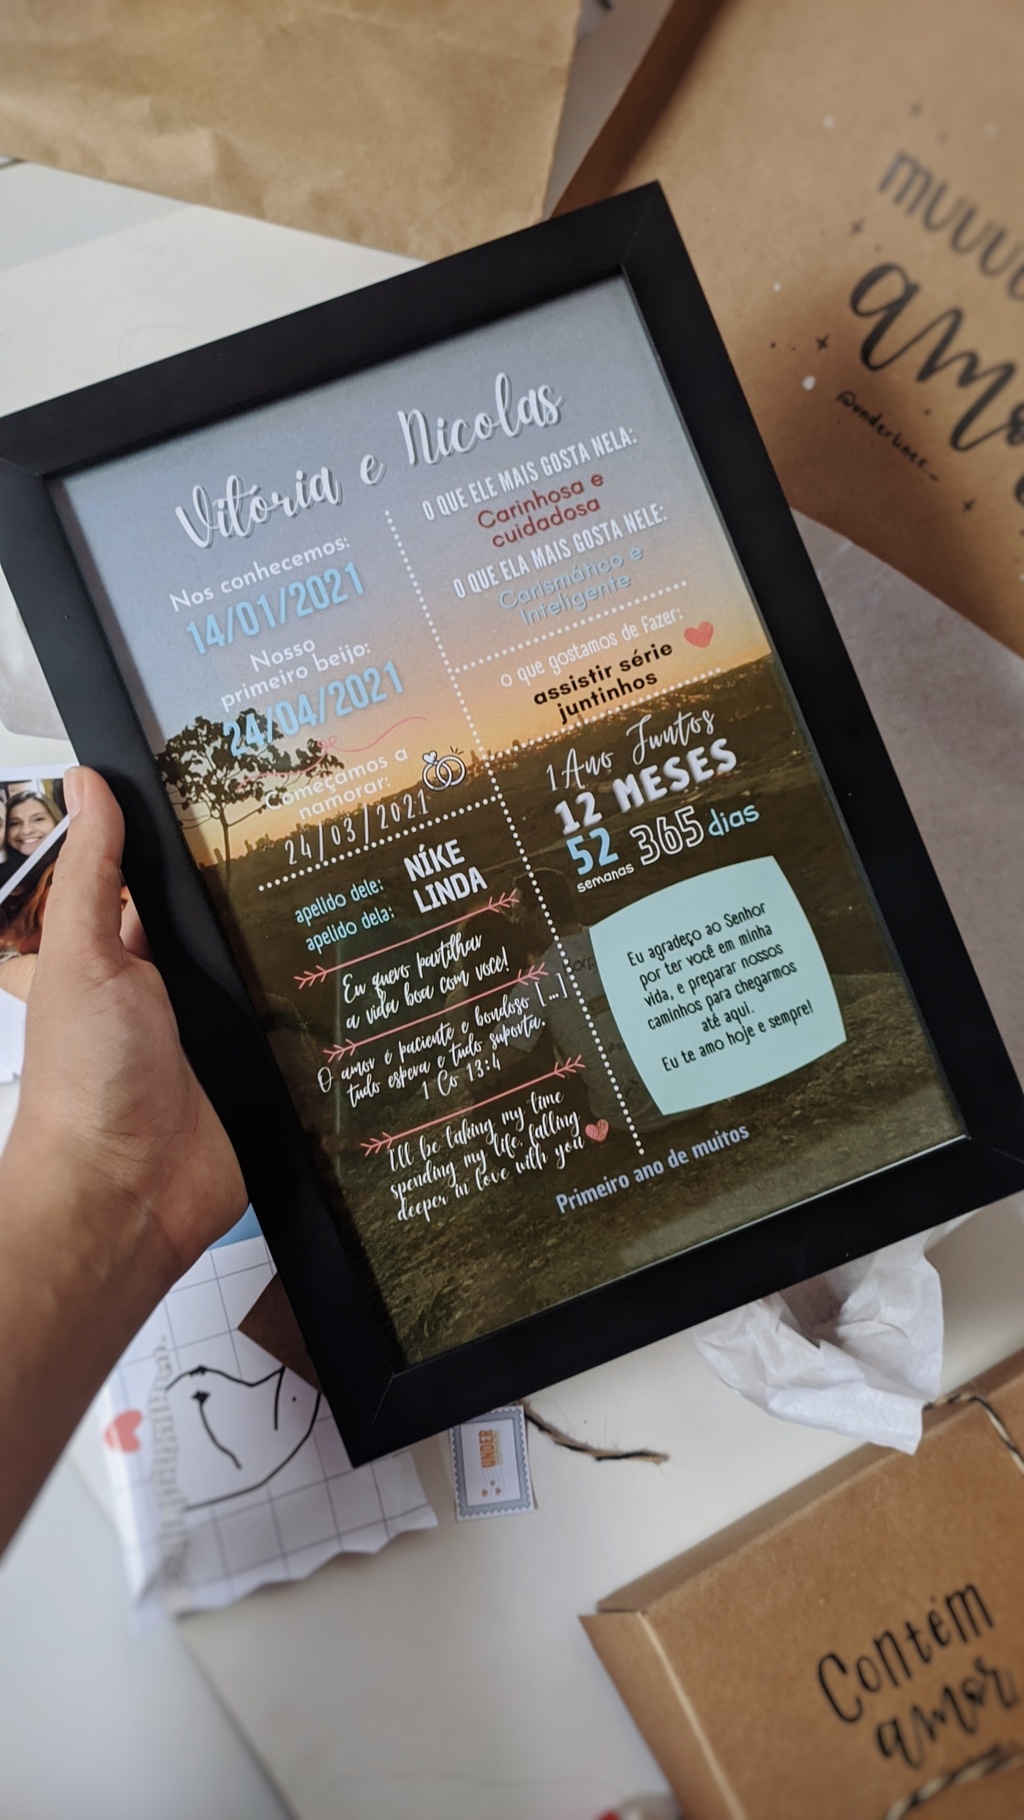 muuu
amo
Vitória e Nicolas
Nos conhecemos:
14/01/2021
Nosso
primeiro beijo:
24/04/2021
Começamos a
namorar:
24/03/2021
apelido dele: NÍKE
apelido dela: LINDA
Eu quero partilhar
a vida boa com você!
O amor é paciente e bondoso [...]
tudo espera e tudo suporta.
1 Co 13:4
I'll be taking my time
spending my life, falling
deeper in love with you
O QUE ELE MAIS GOSTA NELA:
Carinhosa e
cuidadosa
O QUE ELA MAIS GOSTA NELE:
Carismático e
Inteligente
o que gostamos de fazer:
assistir série
juntinhos
1 Ano Juntos
12 MESES
52 365 dias
semanas
Eu agradeço ao Senhor
por ter você em minha
vida, e preparar nossos
caminhos para chegarmos
até aqui.
Eu te amo hoje e sempre!
Primeiro ano de muitos
UNDER
Contém
amor